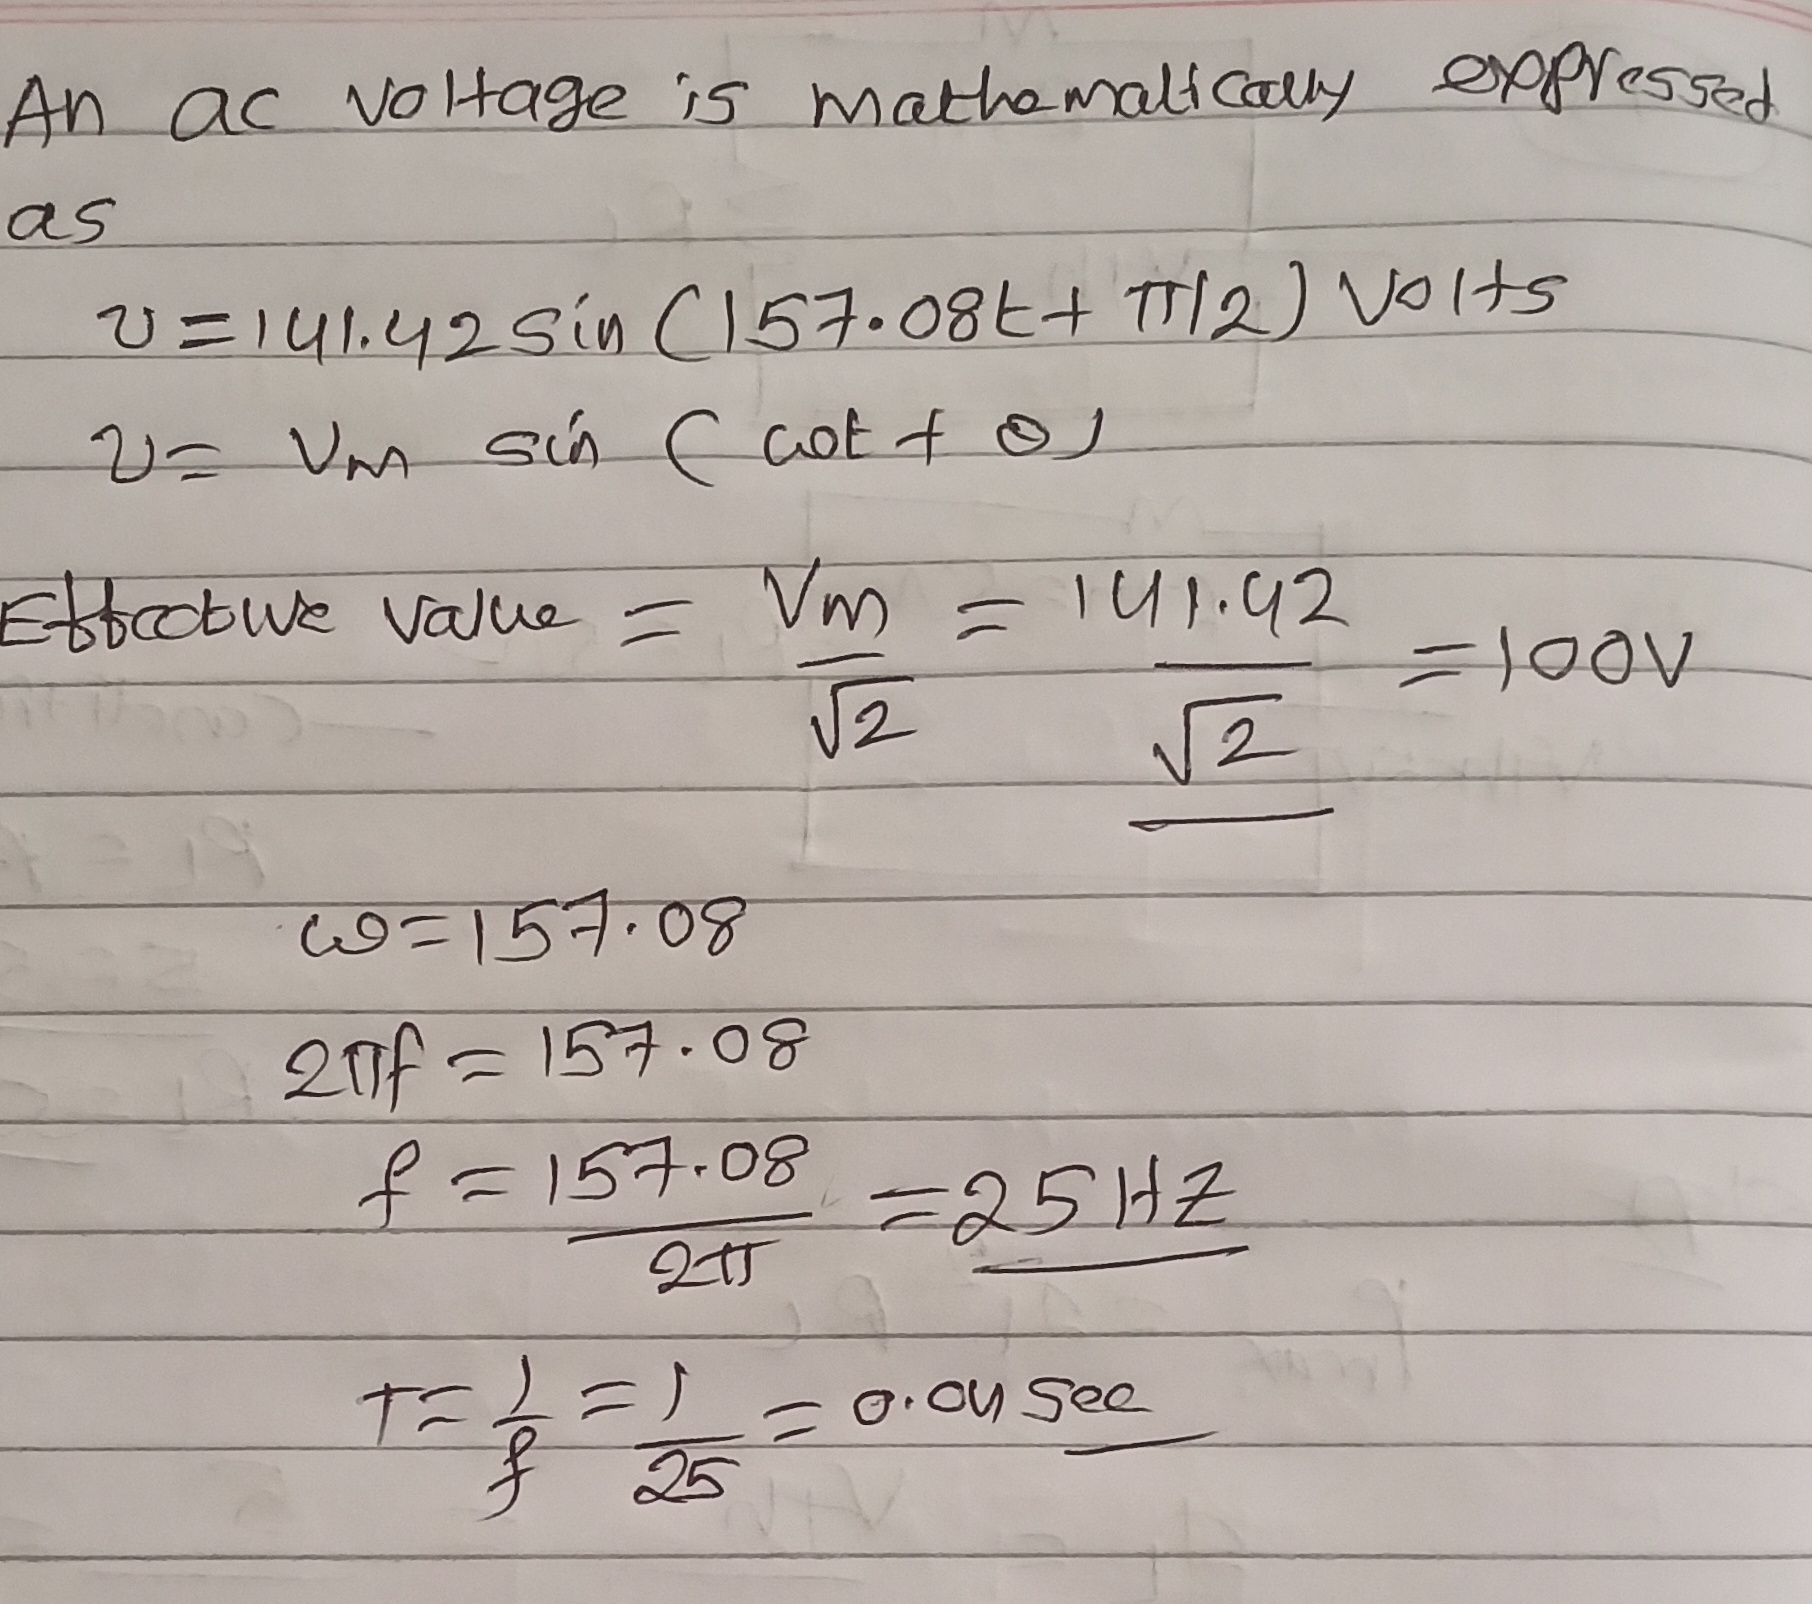 An ac voltage is mathematically expressed
as
v = 141.42 sin (157.08t + π/2) volts
v = Vm sin (ωt + θ)
Effective value = Vm/√2 = 141.42/√2 = 100V
ω = 157.08
2πf = 157.08
f = 157.08/2π = 25 HZ
T = 1/f = 1/25 = 0.04 sec